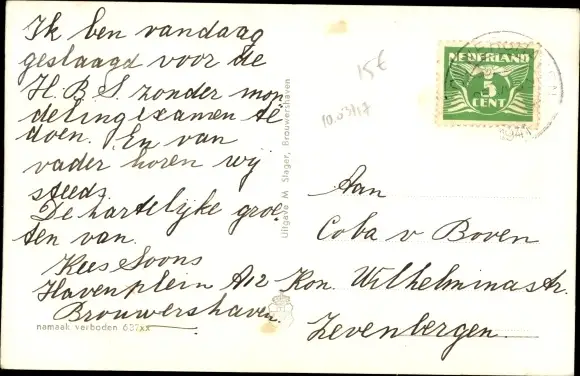 Ik ben vandaag
geslaagd voor de
H.B.S. zonder mon
delingexamen te
doen. En van
vader horen wij
steeds.
De hartelijke groe-
ten van.
Kees Soons
Havenplein A12
Brouwershaven.
namaak verboden 637xx
Uitgave M Slager, Brouwershaven
15€
10.03/17
NEDERLAND
3
CENT
Aan
Coba v Boven
Kon. Wilhelminastr.
Zevenbergen.